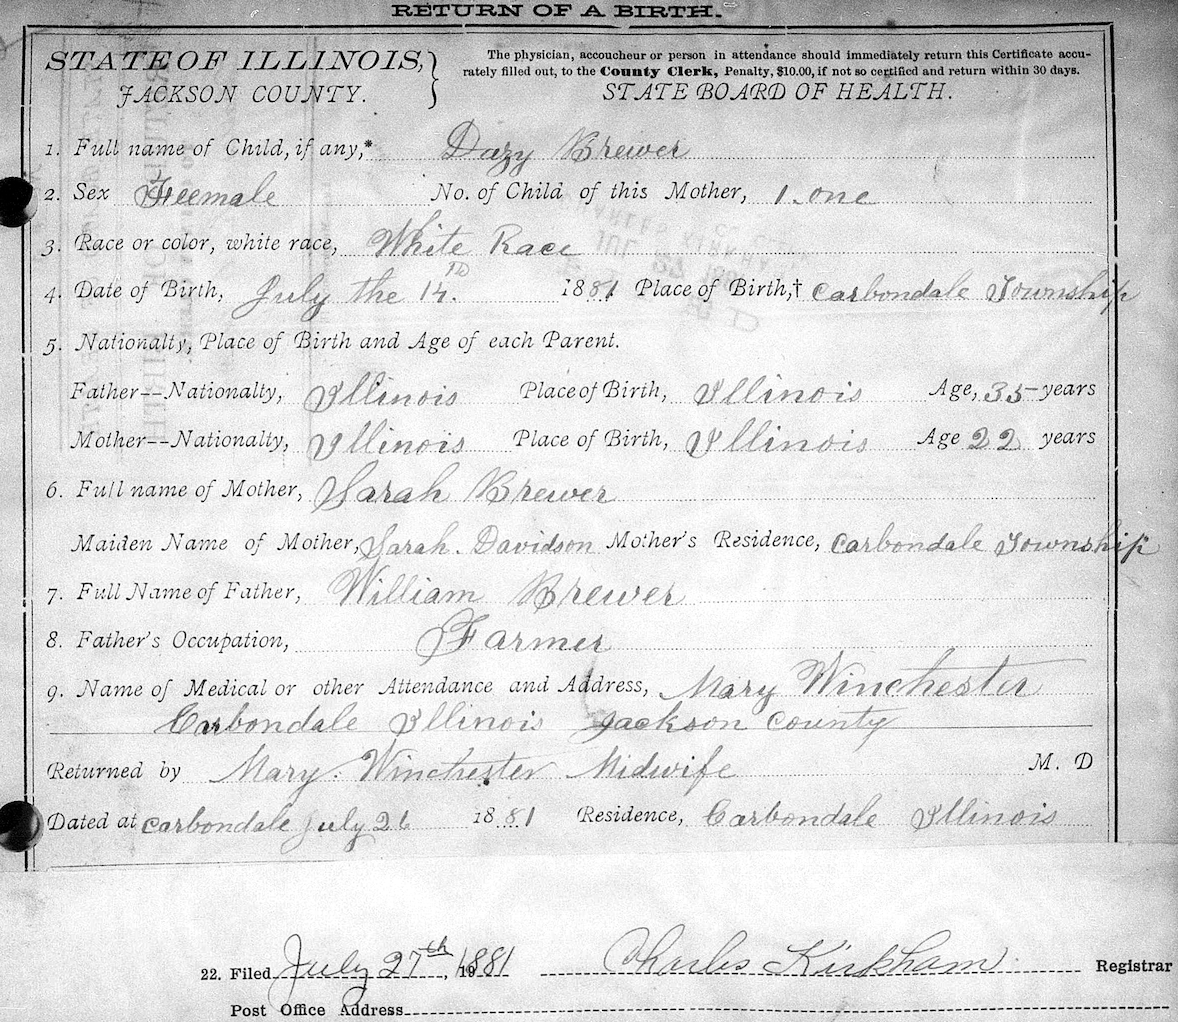 RETURN OF A BIRTH.
STATE OF ILLINOIS, }
JACKSON COUNTY.
The physician, accoucheur or person in attendance should immediately return this Certificate accu-
rately filled out, to the County Clerk, Penalty, $10.00, if not so certified and return within 30 days.
STATE BOARD OF HEALTH.
1. Full name of Child, if any,* Dazy Brewer
2. Sex Feemale No. of Child of this Mother, 1. one
3. Race or color, white race, White Race
4. Date of Birth, July the 14. 1881 Place of Birth,† Carbondale Township
5. Nationalty, Place of Birth and Age of each Parent.
Father--Nationalty, Illinois Place of Birth, Illinois Age, 35 years
Mother--Nationalty, Illinois Place of Birth, Illinois Age 22 years
6. Full name of Mother, Sarah Brewer
Maiden Name of Mother, Sarah. Davidson Mother's Residence, Carbondale Township
7. Full Name of Father, William Brewer
8. Father's Occupation, Farmer
9. Name of Medical or other Attendance and Address, Mary Winchester
Carbondale Illinois Jackson County
Returned by Mary. Winchester Midwife M. D
Dated at Carbondale July 26 1881 Residence, Carbondale Illinois
22. Filed July 27th, 1881 Charles Kirkham Registrar
Post Office Address